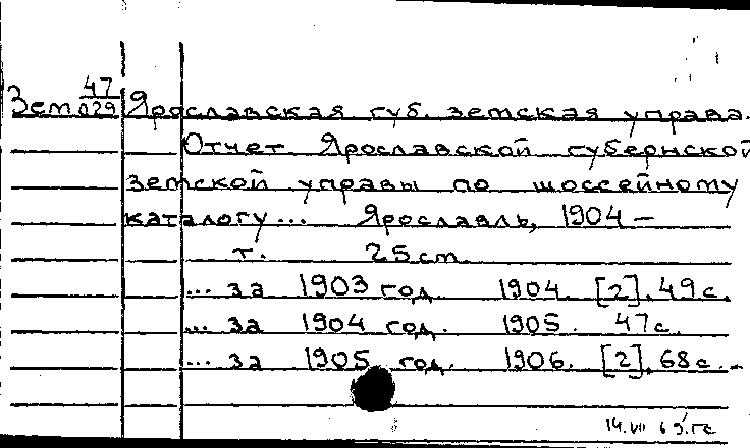 Зем 47/029 Ярославская губ. земская управа.
Отчет Ярославской губернской
земской управы по шоссейному
каталогу... Ярославль, 1904 –
т. 25 cm.
... за 1903 год. 1904. [2], 49 с.
... за 1904 год. 1905. 47 с.
... за 1905 год. 1906. [2], 68 с. –
14.VII